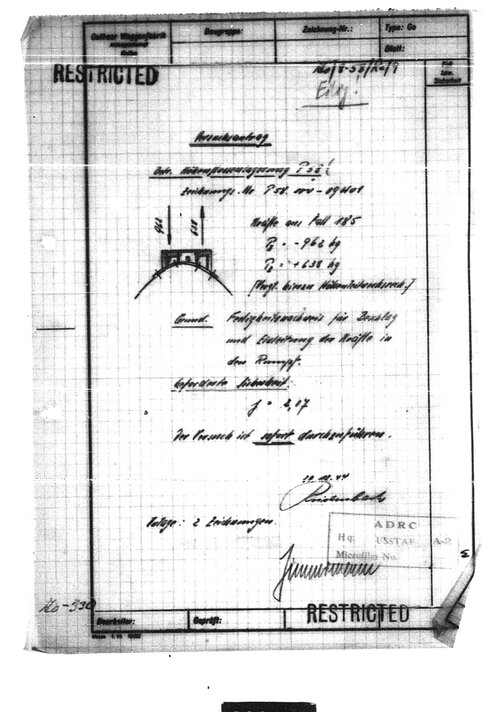 Gothaer Waggonfabrik
Baugruppe:
Zeichnung-Nr.:
Type: Go
Blatt:
RESTRICTED
Eilig.
Versuchsantrag
Betr. Höhenflossenlagerung P58!
Zeichnungs. Nr P58.
962
638
Kräfte aus Fall 185
P = - 962 kg
P = + 638 kg
Grund: Festigkeitsnachweis für Beschlag
und Einleitung der Kräfte in
den Rumpf.
Geforderte Sicherheit:
j = 2,07
Der Versuch ist sofort durchzuführen.
Anlage: 2 Zeichnungen.
ADRC
Hq USSTAF A-2
Microfilm No.
Zimmermann
Bearbeiter:
Geprüft:
RESTRICTED